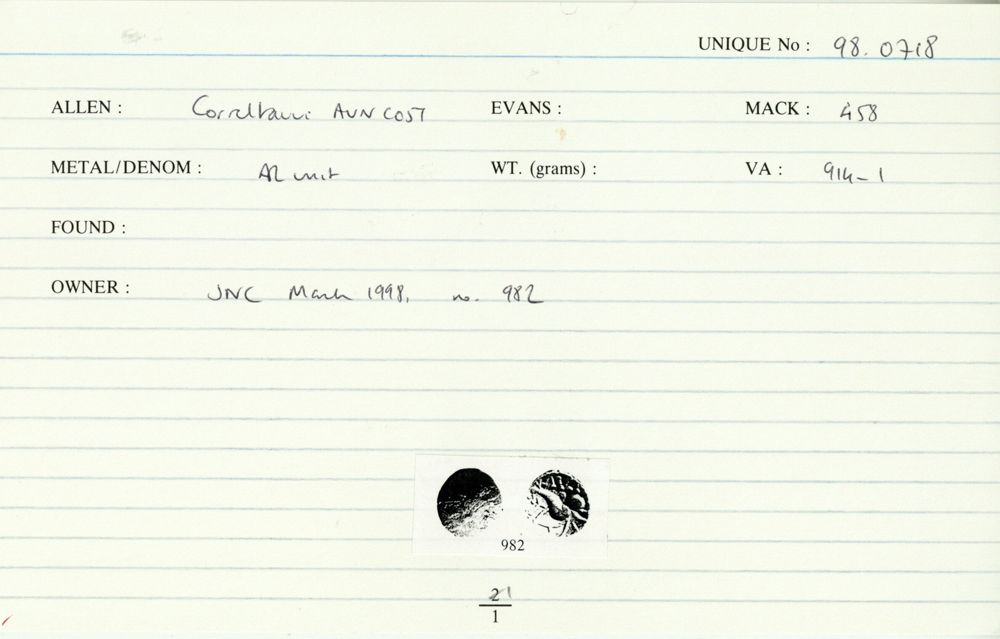 UNIQUE No : 98.0718
ALLEN : Correltauvi AVN COST EVANS : MACK : 458
METAL/DENOM : AR unit WT. (grams) : VA : 914-1
FOUND :
OWNER : JNC March 1998, no. 982
982
21
1